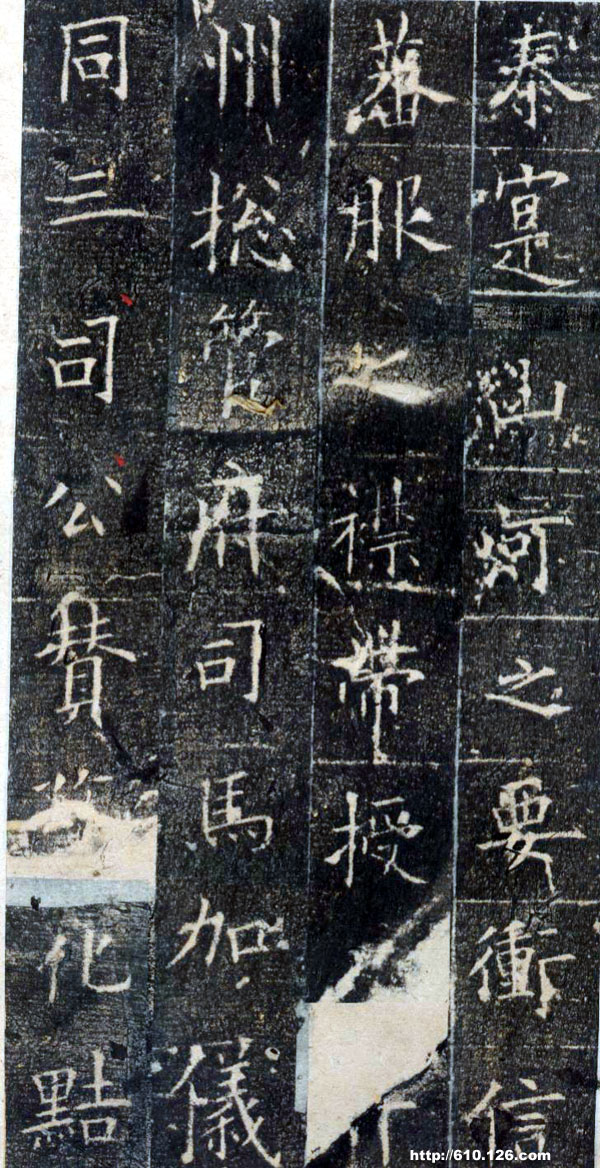 秦寔山河之要衝信
蕃服之襟帶授
州揔管府司馬加儀
同三司公贊化黠
http://610.126.com